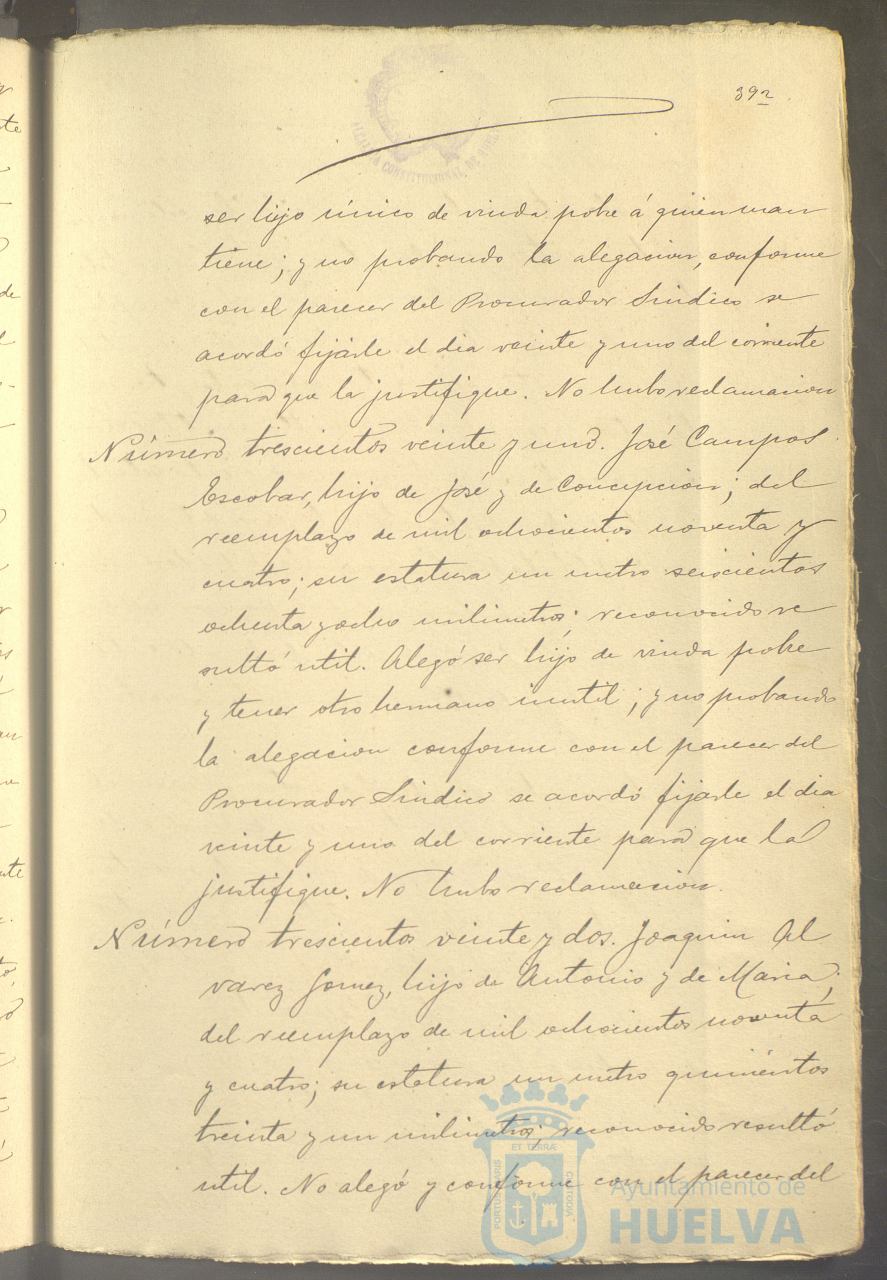 392
ALCALDIA CONSTITUCIONAL DE HUELVA
ser hijo único de viuda pobre á quien man
tiene; y no probando la alegacion, conforme
con el parecer del Procurador Sindico se
acordó fijarle el dia veinte y uno del corriente
para que la justifique. No hubo reclamacion
Número trescientos veinte y uno. José Campos
Escobar, hijo de José y de Concepcion; del
reemplazo de mil ochocientos noventa y
cuatro; su estatura un metro seiscientos
ochenta y ocho milimetros; reconocido re
sultó util. Alegó ser hijo de viuda pobre
y tener otro hermano inutil; y no probando
la alegacion conforme con el parecer del
Procurador Sindico se acordó fijarle el dia
veinte y uno del corriente para que la
justifique. No hubo reclamacion.
Número trescientos veinte y dos. Joaquin Al
varez Gomez, hijo de Antonio y de Maria;
del reemplazo de mil ochocientos noventa
y cuatro; su estatura un metro quinientos
treinta y un milimetros; reconocido resultó
util. No alegó y conforme con el parecer del
PORTUS MARIS ET TERRÆ CUSTODIA
Ayuntamiento de
HUELVA